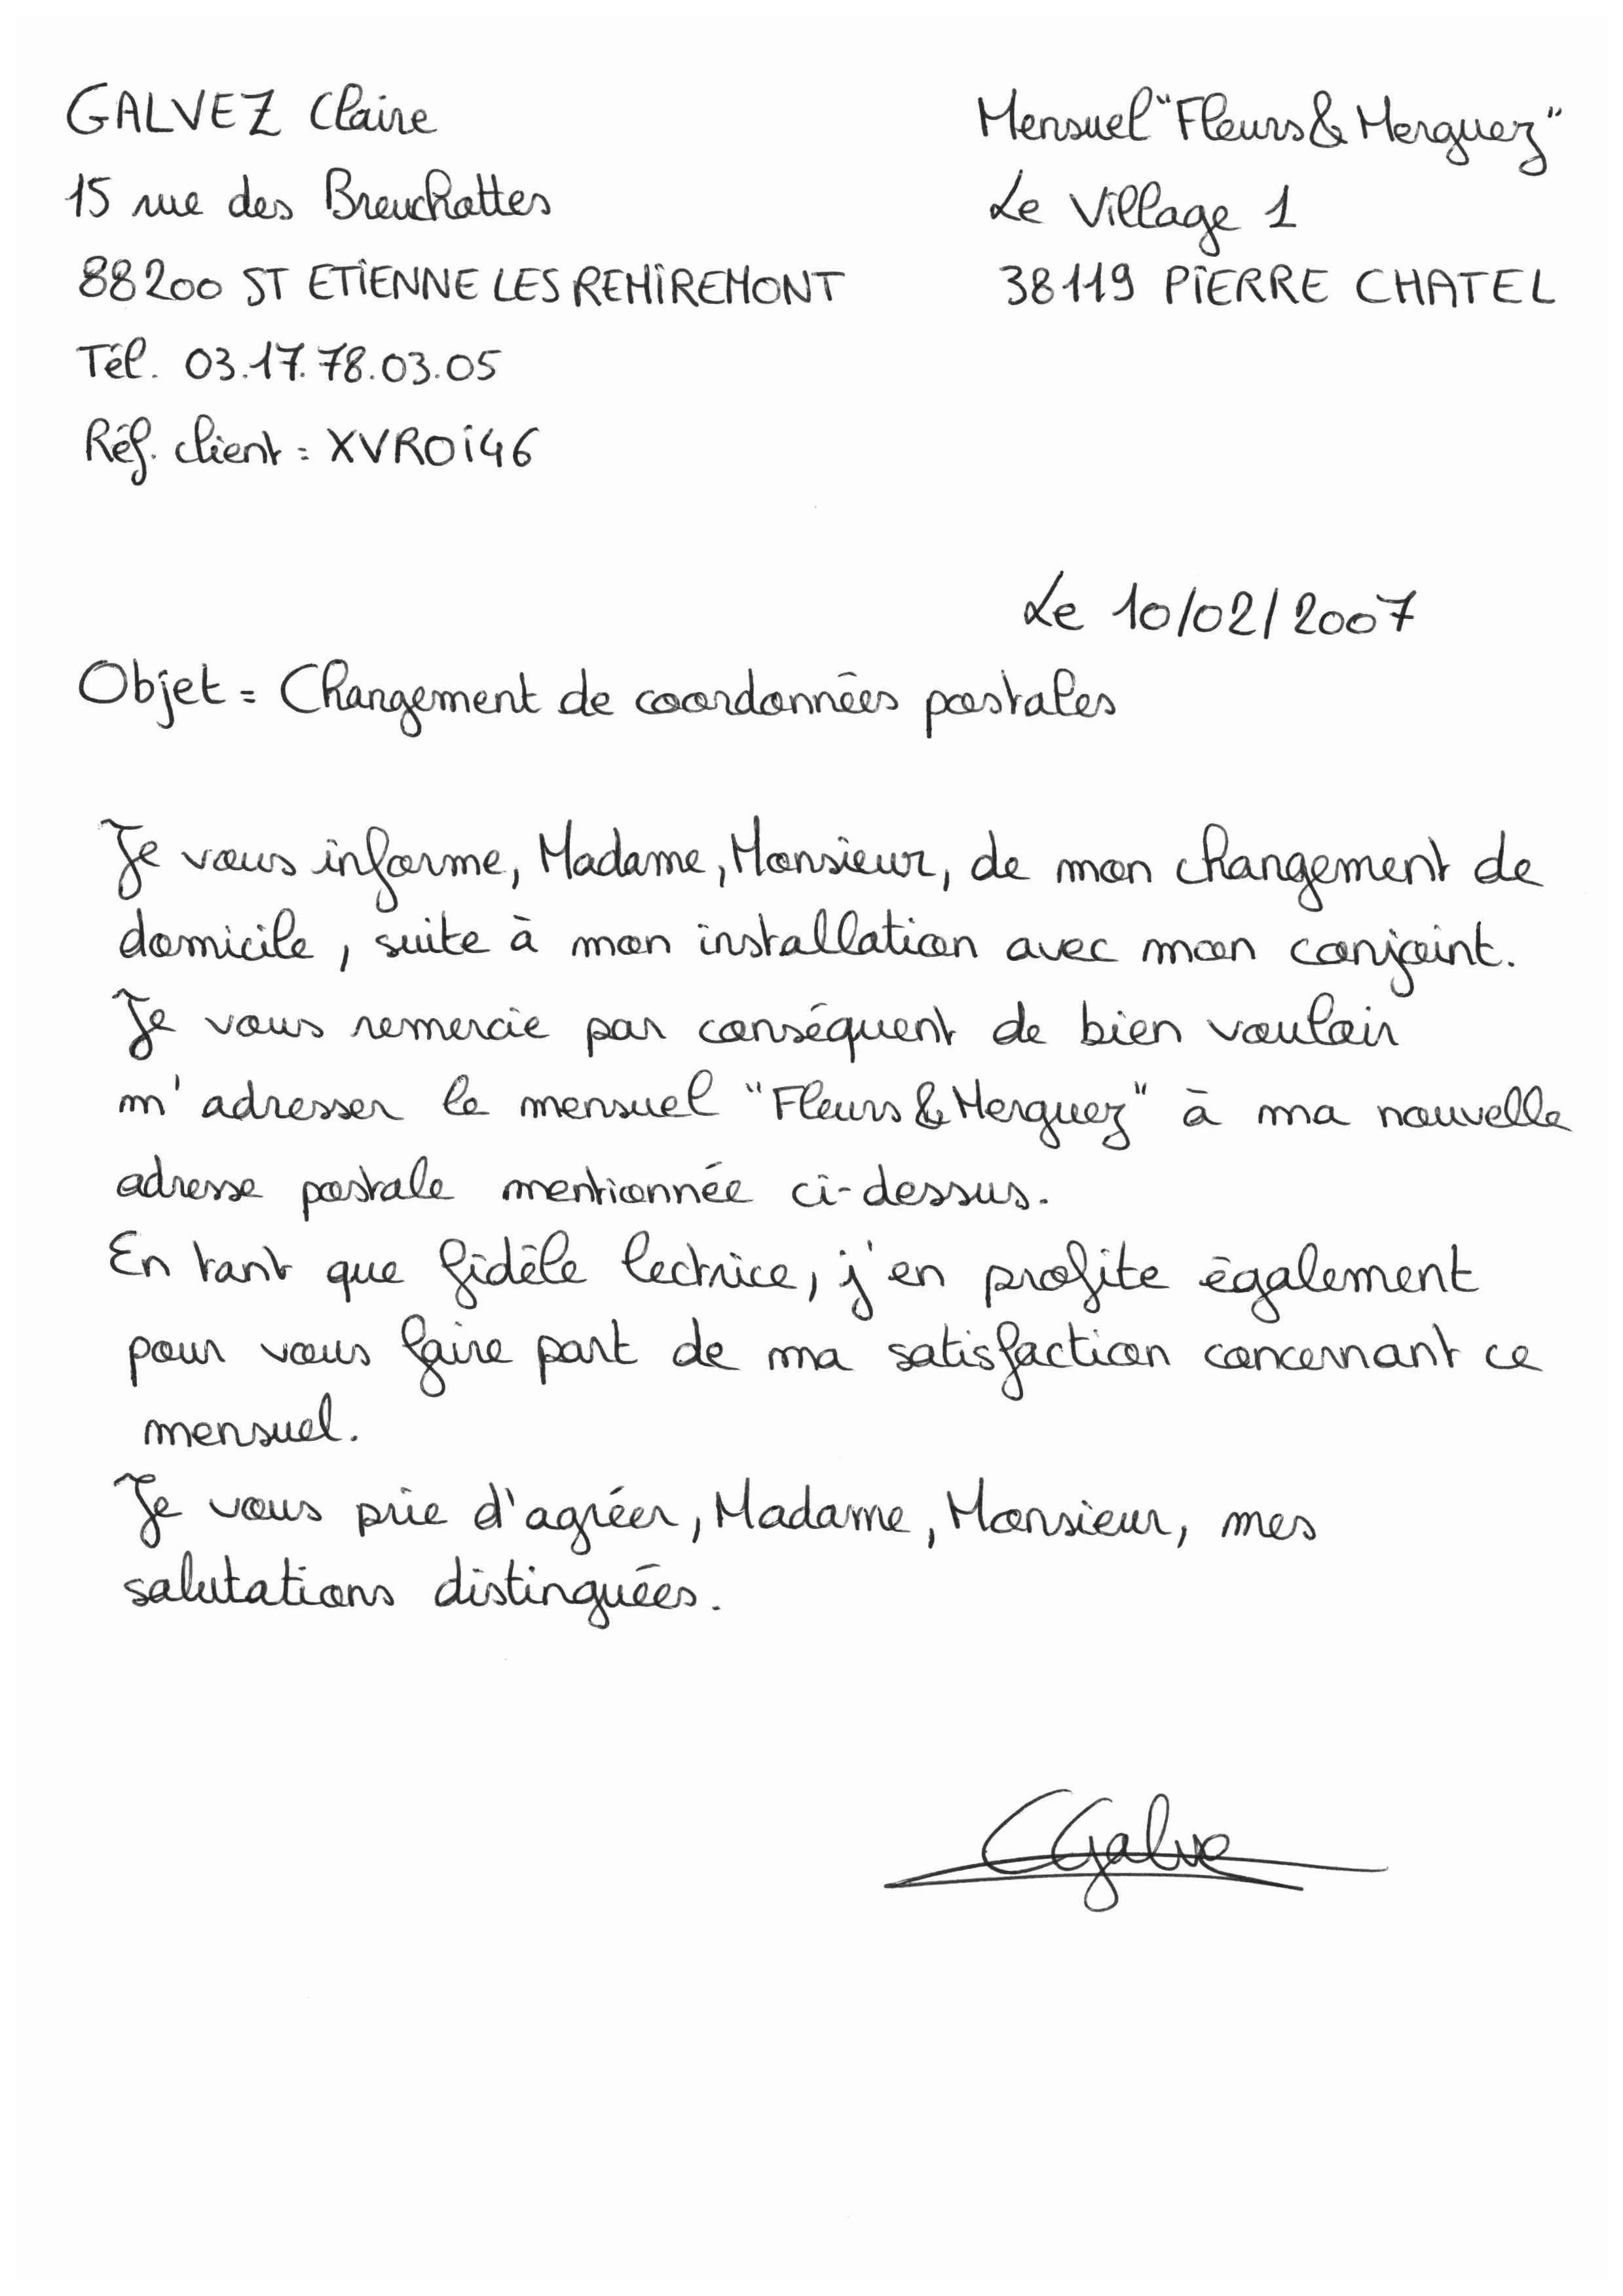 GALVEZ Claire
15 rue des Breuchottes
88200 ST ETIENNE LES REMIREMONT
Tél. 03.17.78.03.05
Réf. client : XVROI46
Mensuel "Fleurs & Merguez"
Le Village 1
38119 PIERRE CHATEL
Le 10/02/2007
Objet : Changement de coordonnées postales
Je vous informe, Madame, Monsieur, de mon changement de
domicile, suite à mon installation avec mon conjoint.
Je vous remercie par conséquent de bien vouloir
m'adresser le mensuel "Fleurs & Merguez" à ma nouvelle
adresse postale mentionnée ci-dessus.
En tant que fidèle lectrice, j'en profite également
pour vous faire part de ma satisfaction concernant ce
mensuel.
Je vous prie d'agréer, Madame, Monsieur, mes
salutations distinguées.
CGalve